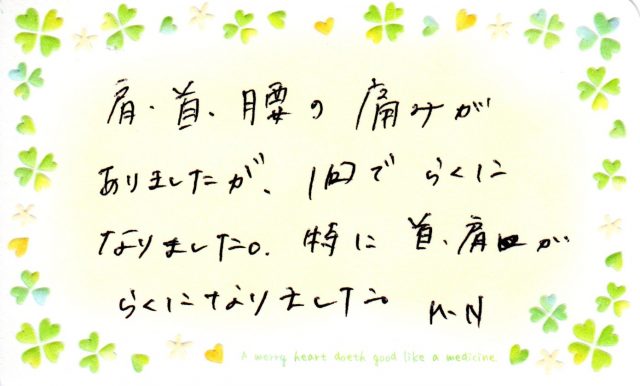 肩・首、腰の痛みが
ありましたが、1回で らくに
なりました。特に 首、肩が
らくになりました。 K-N
A merry heart doeth good like a medicine.